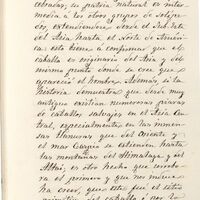 cebradas; su patria natural es inter-
media a los otros grupos de solípe-
dos, extendiéndose desde el Sud-Este
del Asia hasta el Norte de Améri-
ca: esto viene a confirmar que el
caballo es originario del Asia y del
mismo punto donde se cree que
apareció el hombre. Además si la
historia demuestra que desde muy
antiguo existían numerosas piaras
de caballos salvajes en el Asia Cen-
tral, especialmente en las inmen-
sas llanuras que del Oriente y
el mar Caspio se extienden hasta
las montañas del Himalaya y del
Altai, es otro hecho que corrobo-
ra el y que nos induce
ha creer, que este fué el sitio
primitivo del caballo; por lo